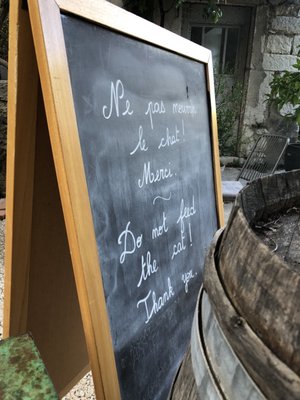 Ne pas nourrir
le chat!
Merci.
Do not feed
the cat!
Thank you.